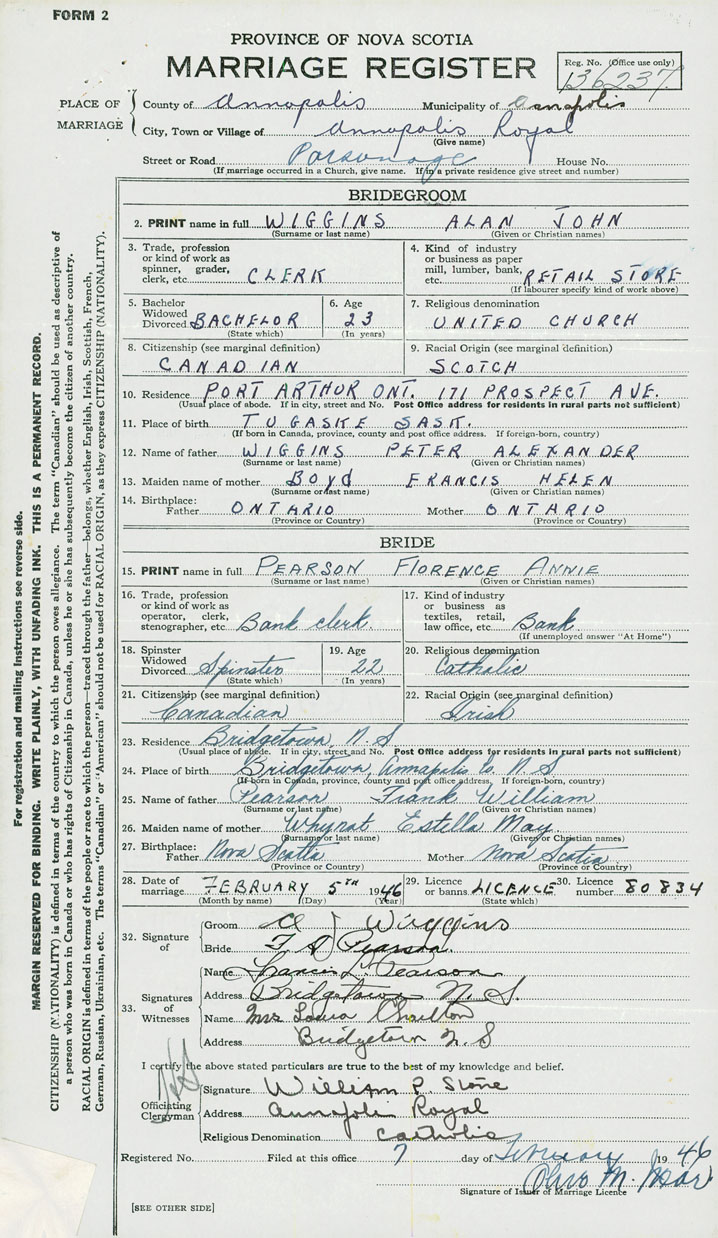 FORM 2
PROVINCE OF NOVA SCOTIA
MARRIAGE REGISTER
Reg. No. (Office use only)
136237
PLACE OF MARRIAGE
County of Annapolis Municipality of Annapolis
City, Town or Village of Annapolis Royal
(Give name)
Street or Road Parsonage House No.
(If marriage occurred in a Church, give name. If in a private residence give street and number)
BRIDEGROOM
2. PRINT name in full WIGGINS ALAN JOHN
(Surname or last name) (Given or Christian names)
3. Trade, profession or kind of work as spinner, grader, clerk, etc. CLERK
4. Kind of industry or business as paper mill, lumber, bank, etc. RETAIL STORE
(If labourer specify kind of work above)
5. Bachelor Widowed Divorced BACHELOR
(State which)
6. Age 23
(In years)
7. Religious denomination
UNITED CHURCH
8. Citizenship (see marginal definition)
CANADIAN
9. Racial Origin (see marginal definition)
SCOTCH
10. Residence PORT ARTHUR ONT. 171 PROSPECT AVE.
(Usual place of abode. If in city, street and No. Post Office address for residents in rural parts not sufficient)
11. Place of birth TUGASKE SASK.
(If born in Canada, province, county and post office address. If foreign-born, country)
12. Name of father WIGGINS PETER ALEXANDER
(Surname or last name) (Given or Christian names)
13. Maiden name of mother BOYd FRANCIS HELEN
(Surname or last name) (Given or Christian names)
14. Birthplace: Father ONTARIO Mother ONTARIO
(Province or Country) (Province or Country)
BRIDE
15. PRINT name in full PEARSON FLORENCE ANNIE
(Surname or last name) (Given or Christian names)
16. Trade, profession or kind of work as operator, clerk, stenographer, etc. Bank clerk.
17. Kind of industry or business as textiles, retail, law office, etc. Bank
(If unemployed answer "At Home")
18. Spinster Widowed Divorced Spinster
(State which)
19. Age 22
(In years)
20. Religious denomination
Catholic
21. Citizenship (see marginal definition)
Canadian
22. Racial Origin (see marginal definition)
Irish
23. Residence Bridgetown, N.S
(Usual place of abode. If in city, street and No. Post Office address for residents in rural parts not sufficient)
24. Place of birth Bridgetown, Annapolis Co. N.S
(If born in Canada, province, county and post office address. If foreign-born, country)
25. Name of father Pearson Frank William
(Surname or last name) (Given or Christian names)
26. Maiden name of mother Whynot Estella May
(Surname or last name) (Given or Christian names)
27. Birthplace: Father Nova Scotia Mother Nova Scotia
(Province or Country) (Province or Country)
28. Date of marriage FEBRUARY 5TH 1946
(Month by name) (Day) (Year)
29. Licence or banns LICENCE
(State which)
30. Licence number 80834
32. Signature of
Groom A J Wiggins
Bride F A Pearson.
33. Signatures of Witnesses
Name Francis L. Pearson
Address Bridgetown N.S.
Name Mrs Loura
Address Bridgetown N.S
I certify the above stated particulars are true to the best of my knowledge and belief.
Officiating Clergyman
Signature William P. Stone
Address Annapolis Royal
Religious Denomination Catholic
Registered No. Filed at this office 7 day of February 1946
Signature of Issuer of Marriage Licence
[SEE OTHER SIDE]
For registration and mailing Instructions see reverse side.
MARGIN RESERVED FOR BINDING. WRITE PLAINLY, WITH UNFADING INK. THIS IS A PERMANENT RECORD.
CITIZENSHIP (NATIONALITY) is defined in terms of the country to which the person owes allegiance. The term "Canadian" should be used as descriptive of
a person who was born in Canada or who has rights of Citizenship in Canada, unless he or she has subsequently become the citizen of another country.
RACIAL ORIGIN is defined in terms of the people or race to which the person—traced through the father—belongs, whether English, Irish, Scottish, French,
German, Russian, Ukrainian, etc. The terms "Canadian" or "American" should not be used for RACIAL ORIGIN, as they express CITIZENSHIP (NATIONALITY).